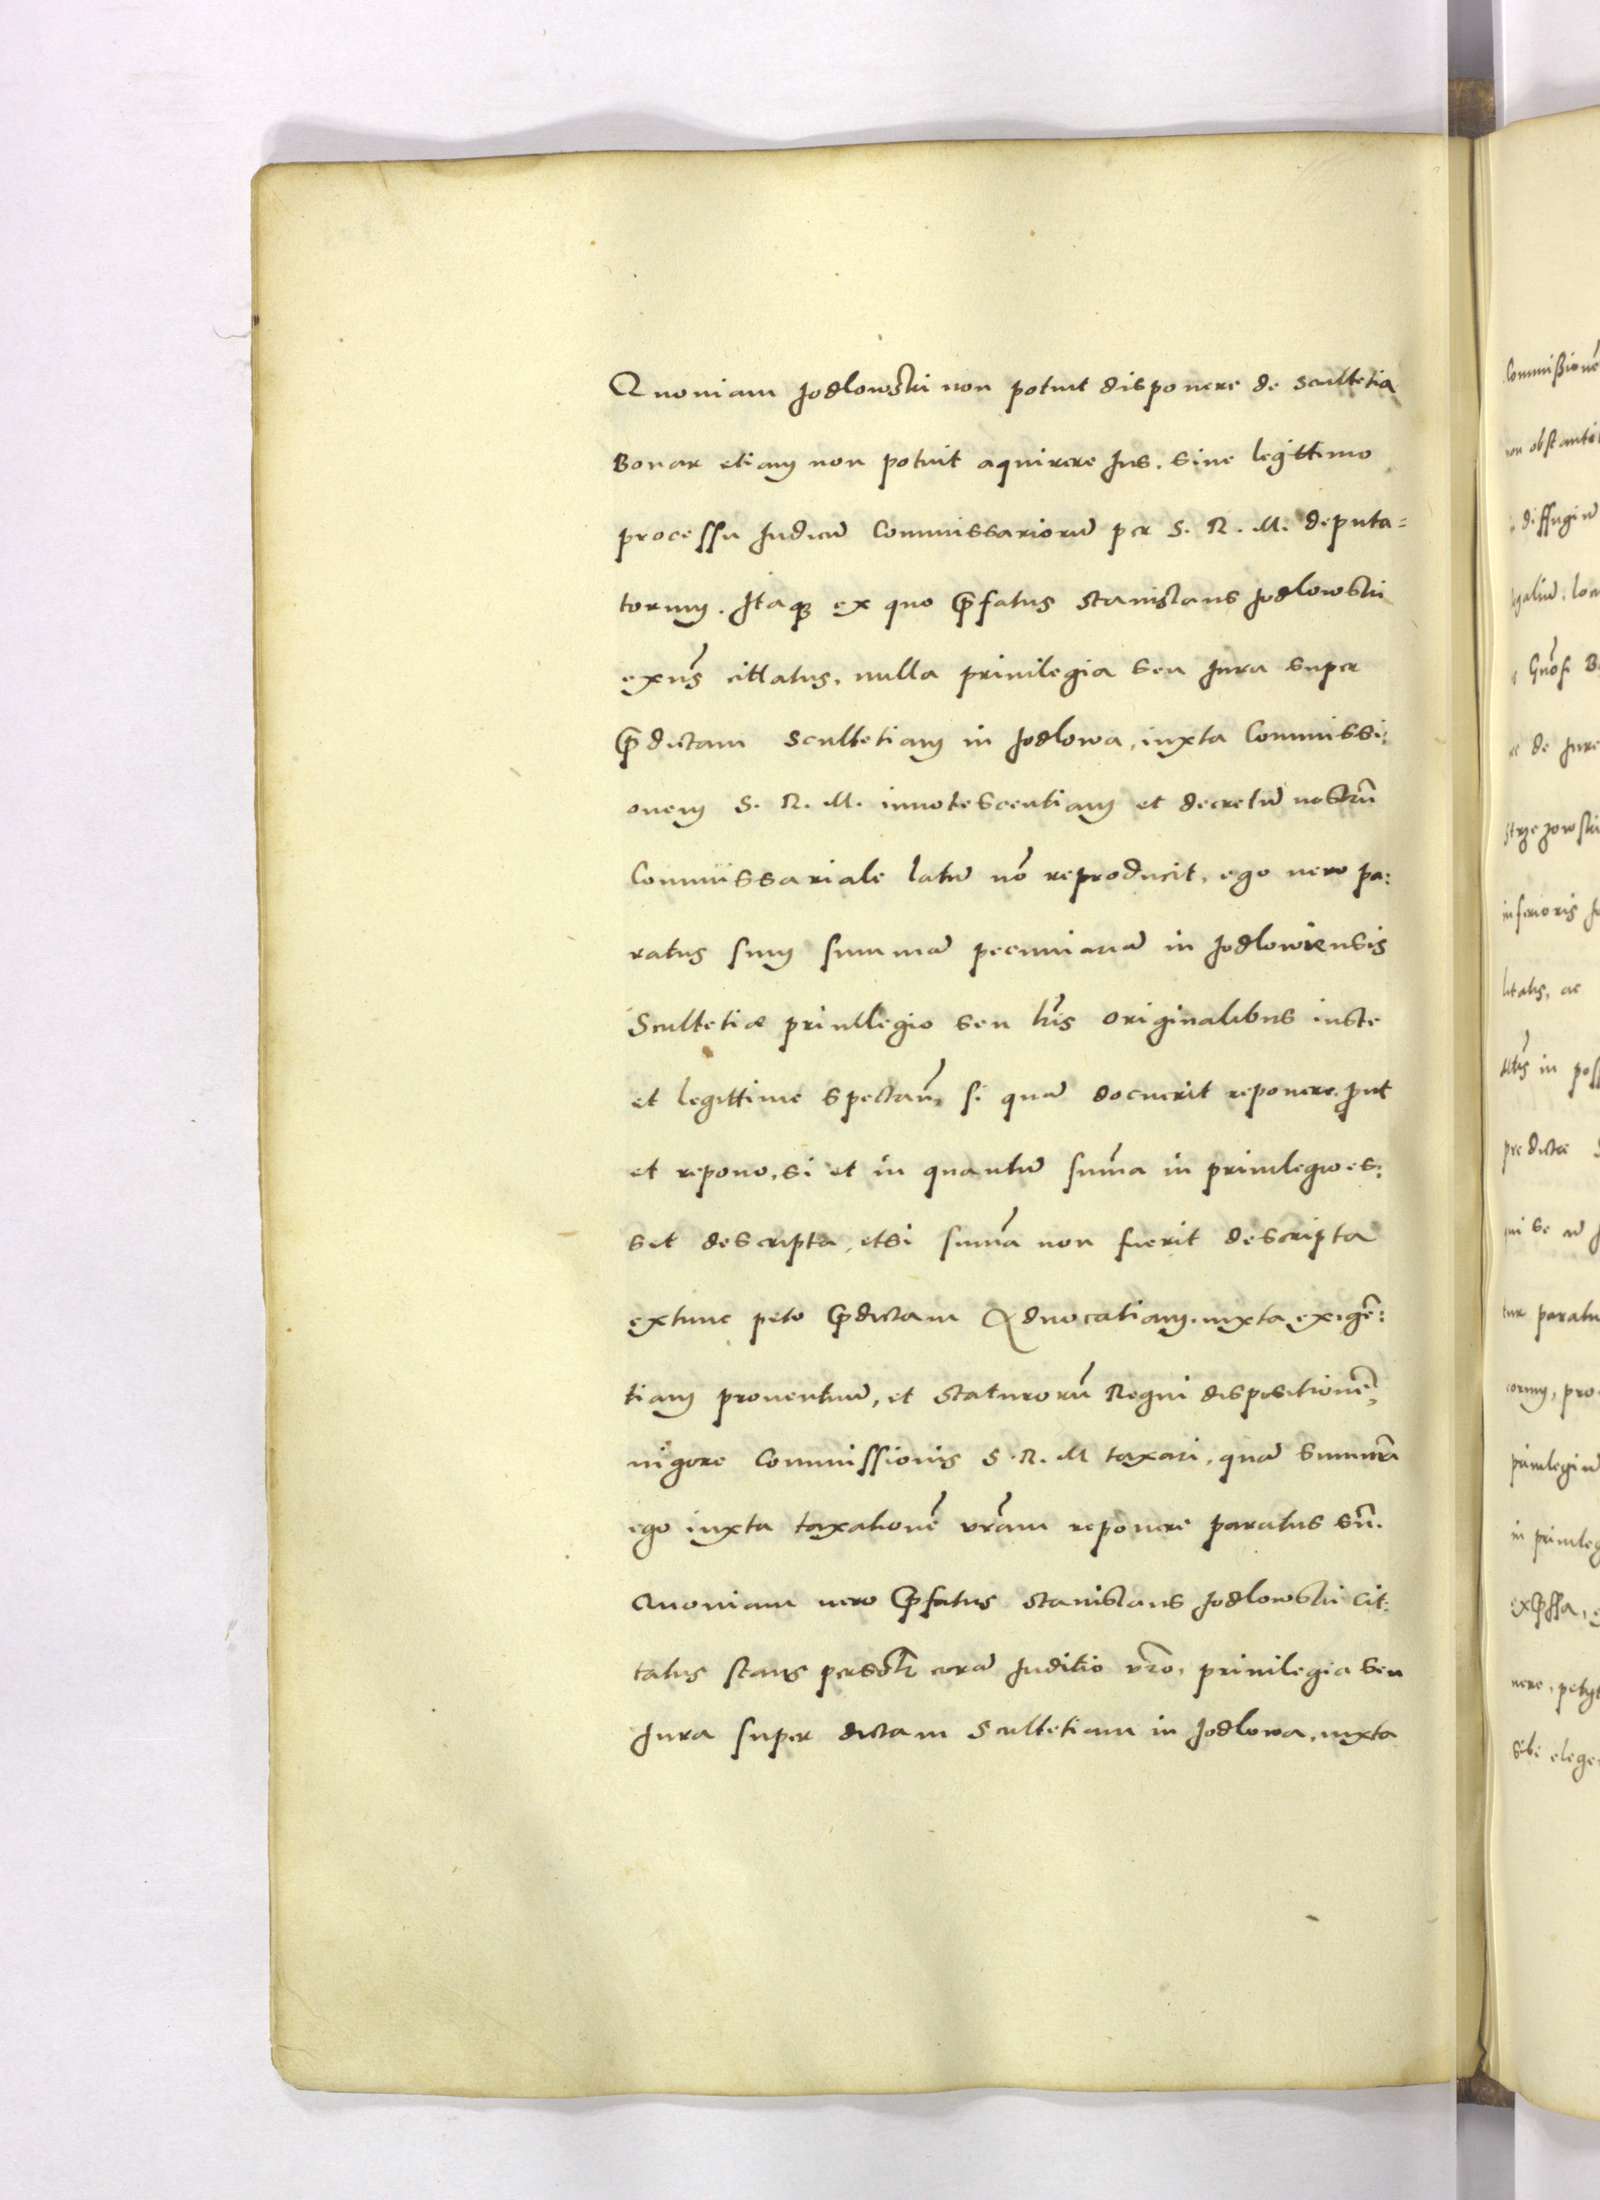 Quoniam Jodlowskii non potuit disponere de scultetia
Bonar etiam non potuit aquirere Jus. sine legittimo
processu Judicũ Commissariorũ per S. R. M. deputa=
torum. Itaq̃ ex quo p̃fatus Stanislaus Jodlowskii
exñs cittatus, nulla priuilegia seu Jura super
p̃dictam Scultetiam in Jodlowa, iuxta Commissi:
onem S. R. M. innotescentiam et decretũ nostrũ
Commissariale latũ nõ reproducit, ego uero pa:
ratus sum summã pecuniariã in Jodlowiensis
Scultetiæ priuilegio seu lr̃is originalibus iuste
et legittime spectañ, si quã docuerit reponere, put
et repono, si et in quantũ sum̃a in priuilegio es:
set descripta, etsi sum̃a non fuerit descripta
extunc peto p̃dictam Aduocatiam, iuxta exigẽ:
tiam prouentuũ, et Statutorũ Regni dispositionẽ,
uigore Commissionis S. R. M taxari, quã summã
ego iuxta taxationẽ vr̃am reponere paratus sũ.
Quoniam uero p̃fatus Stanislaus Jodlowskii cit:
tatus stans corã Juditio vr̃o, priuilegia seu
Jura super dictam Scultetiam in Jodlowa, iuxta
Commissionẽ
non obstanti
diffugiũ
de Jure
inferioris
litatis, ac
in poss
predictæ
paratu
priuilegiũ
in priuileg
sibi elege